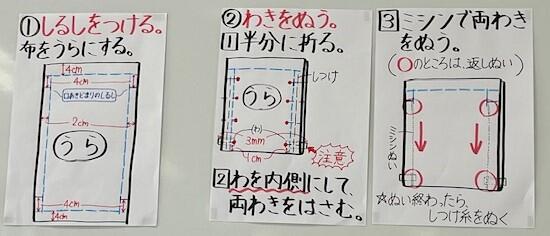 ①しるしをつける。
布をうらにする。
4cm
4cm
口あきどまりのしるし
2cm
うら
4cm
4cm
②わきをぬう。
1半分に折る。
しつけ
うら
(わ)
3mm
1cm
注意
2わを内側にして、
両わきをはさむ。
3ミシンで両わき
をぬう。
(○のところは、返しぬい)
ミシンぬい
☆ぬい終わったら、
しつけ糸をぬく